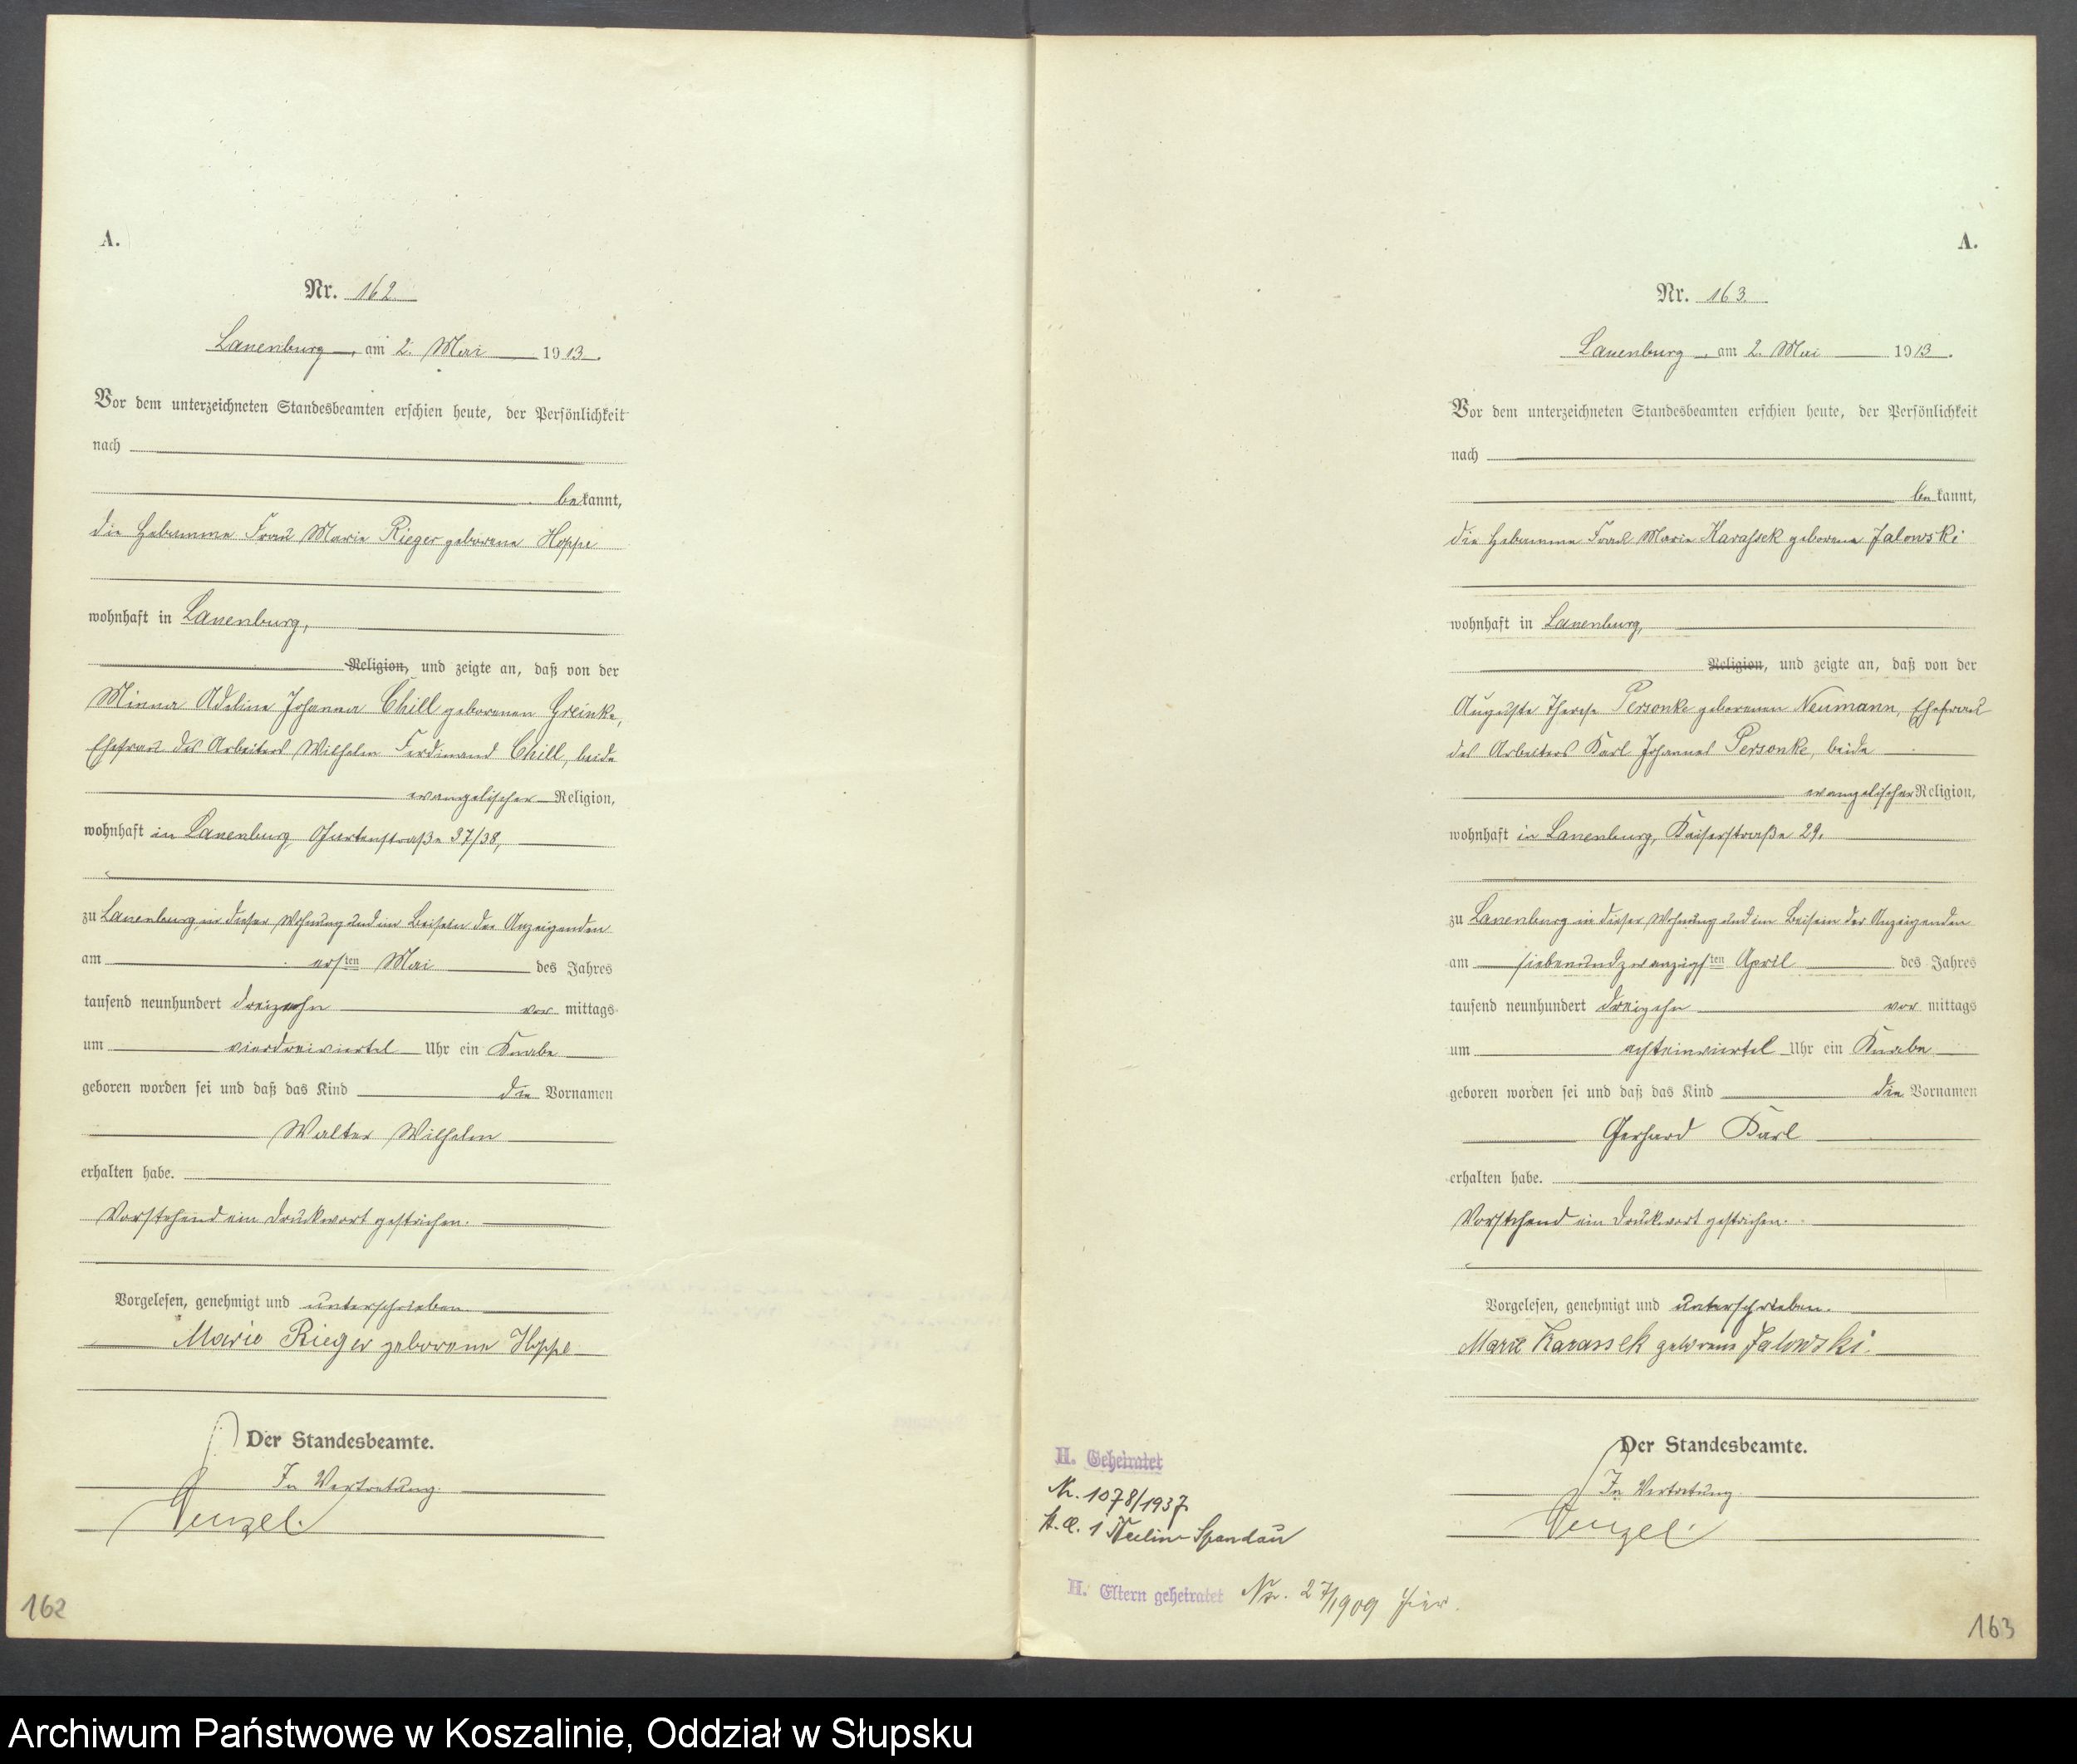 A.
Nr. 162.
Lauenburg, am 2. Mai 1913.
Vor dem unterzeichneten Standesbeamten erschien heute, der Persönlichkeit
nach
bekannt,
die Hebamme Frau Marie Rieger geborene Hoppe
wohnhaft in Lauenburg,
Religion, und zeigte an, daß von der
Minna Adeline Johanna Chill geborenen Greinke,
Ehefrau des Arbeiters Wilhelm Ferdinand Chill, beide
evangelischer Religion,
wohnhaft in Lauenburg, Gartenstraße 37/38,
zu Lauenburg, in dieser Wohnung und im Beisein der Anzeigenden
am ersten Mai des Jahres
tausend neunhundert dreizehn vor mittags
um vierdreiviertel Uhr ein Knabe
geboren worden sei und daß das Kind die Vornamen
Walter Wilhelm
erhalten habe.
Vorstehend ein Druckwort gestrichen.
Vorgelesen, genehmigt und unterschrieben.
Marie Rieger geborene Hoppe
Der Standesbeamte.
In Vertretung.
162
A.
Nr. 163.
Lauenburg, am 2. Mai 1913.
Vor dem unterzeichneten Standesbeamten erschien heute, der Persönlichkeit
nach
bekannt,
die Hebamme Frau Marie Karassek geborene Jalowski
wohnhaft in Lauenburg,
Religion, und zeigte an, daß von der
Auguste Therese Personke geborenen Neumann, Ehefrau
des Arbeiters Karl Johannes Personke, beide
evangelischer Religion,
wohnhaft in Lauenburg, Kaiserstraße 29.
zu Lauenburg in dieser Wohnung und im Beisein der Anzeigenden
am siebenundzwanzigsten April des Jahres
tausend neunhundert dreizehn vor mittags
um achteinviertel Uhr ein Knabe
geboren worden sei und daß das Kind die Vornamen
Gerhard Karl
erhalten habe.
Vorstehend ein Druckwort gestrichen.
Vorgelesen, genehmigt und unterschrieben.
Marie Karassek geborene Jalowski.
Der Standesbeamte.
In Vertretung.
H. Geheiratet
Nr. 1078/1937
St. A. 1 Berlin-Spandau
H. Eltern geheiratet Nr. 27/1909 hier.
163
Archiwum Państwowe w Koszalinie, Oddział w Słupsku